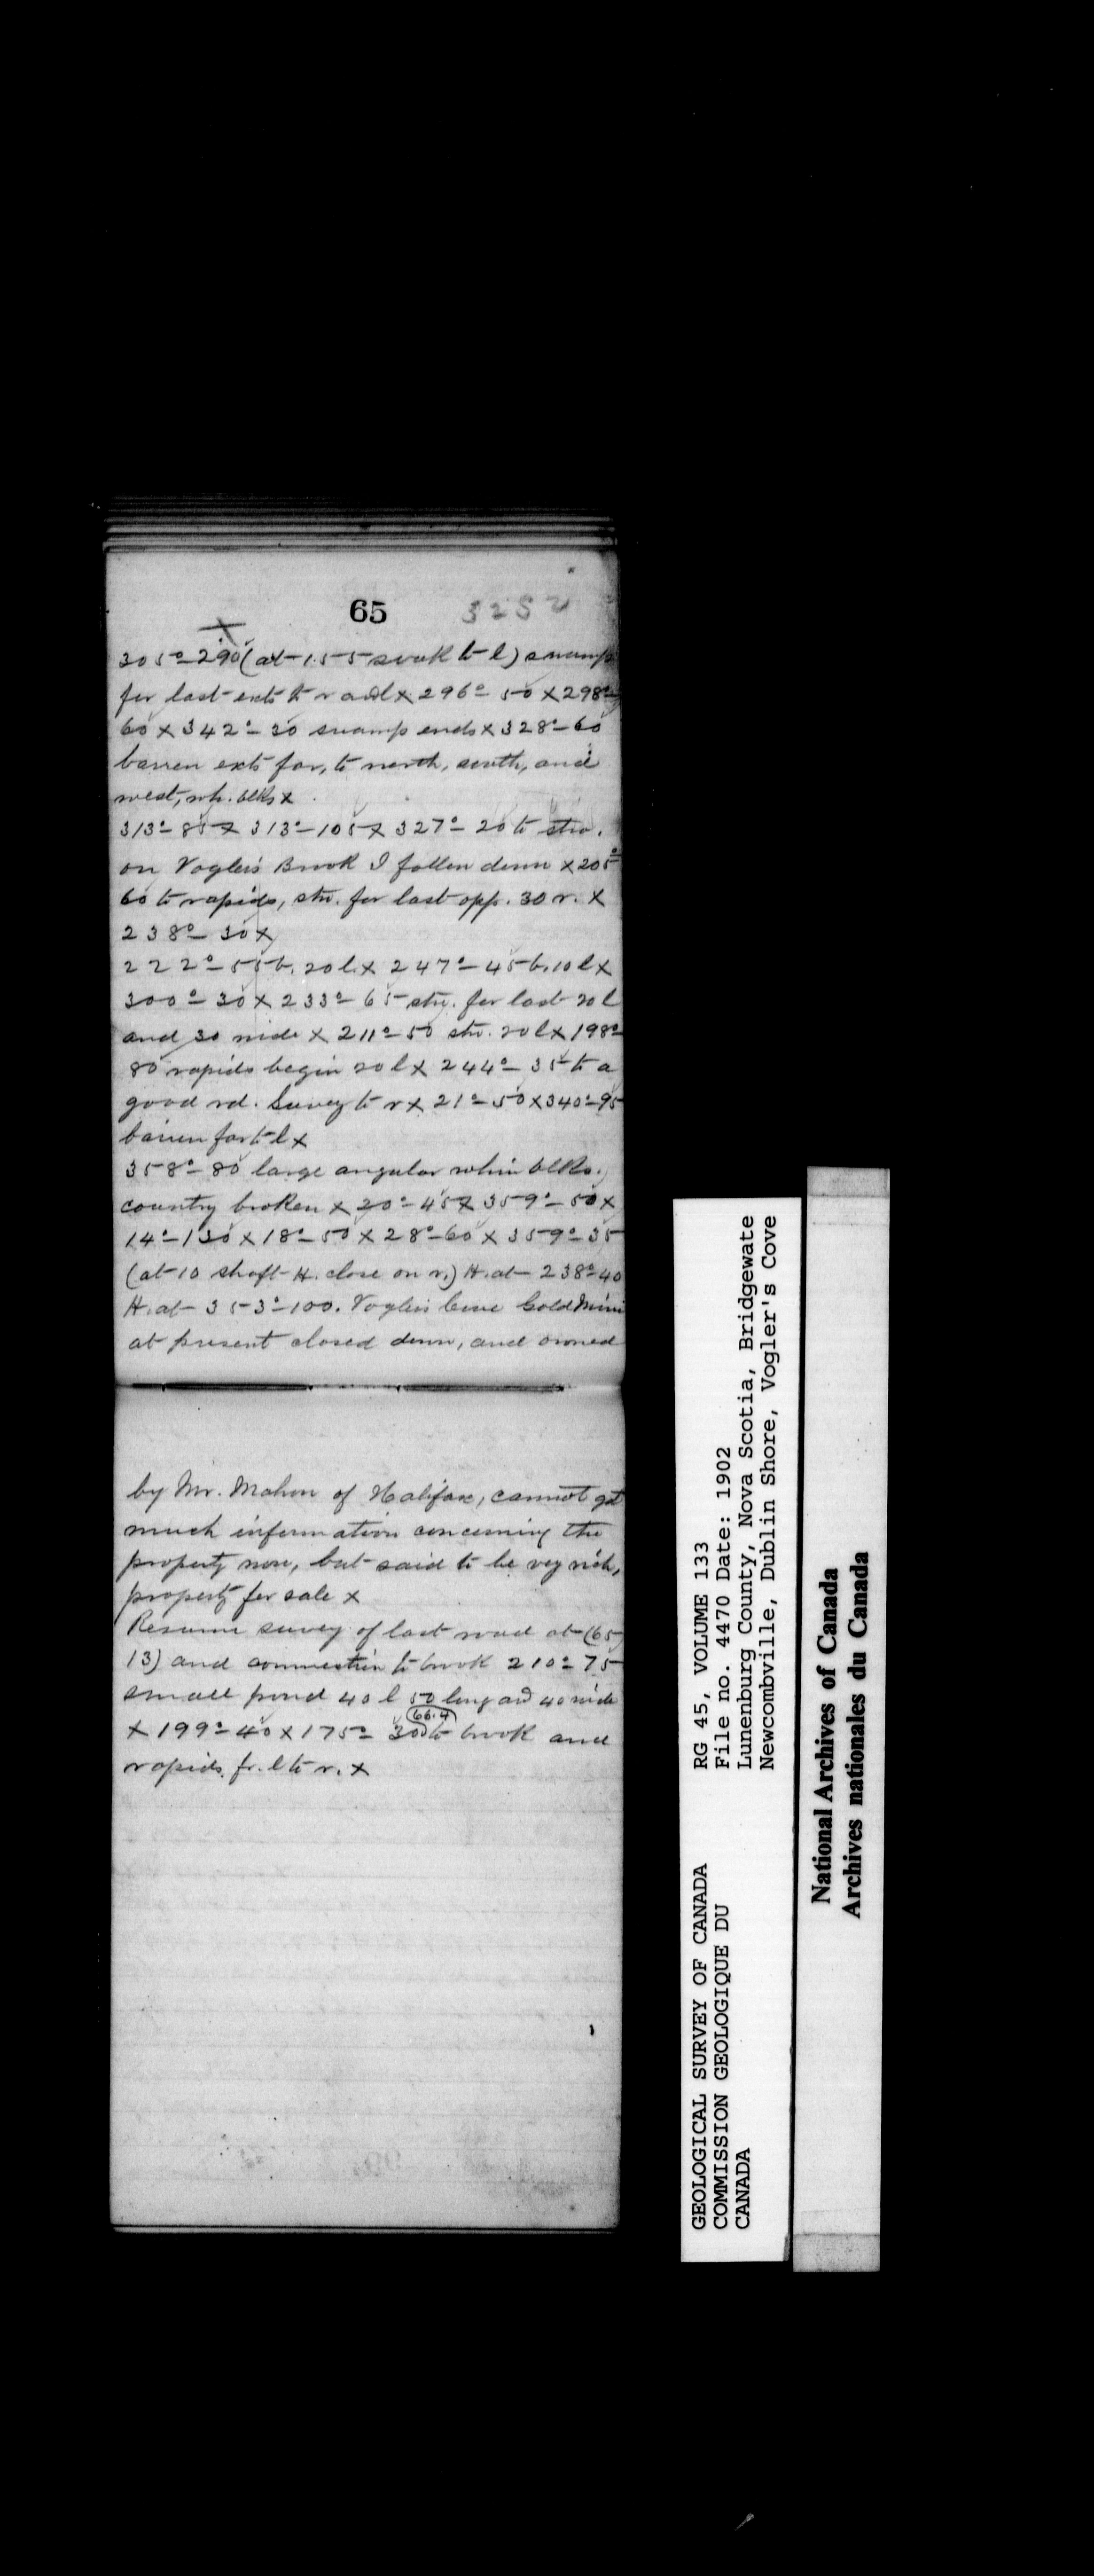 65 3252
305°-290 (at 155 soak to l) swamp
for last exts to r and l x 296°-50 x 298°-
60 x 342°-30 swamp ends x 328°-60
barren exts far, to north, south, and
west, wh. blks x
313°-85 x 313°-105 x 327°-20 to stw.
on Vogler's Brook I follow down x 205°
60 to rapids, stw. for last opp. 30 r. x
238°-30 x
222°-55 b. 20 l. x 247°-45 b. 10 l x
300°-30 x 233°-65 stw. for last 20 l
and 30 wide x 211°-50 stw. 20 l x 198°
80 rapids begin 20 l x 244°-35 to a
good rd. Survey to r x 21°-50 x 340°-95
barren far to l x
358°-80 large angular whin blks.,
country broken x 20°-45 x 359°-50 x
14°-130 x 18°-50 x 28°-60 x 359°-35
(at 10 shaft H. close on r.) H. at 238°-40
H. at 353°-100. Voglers Cove Gold Mine
at present closed down, and owned
by Mr. Mahon of Halifax, cannot get
much information concerning the
property now, but said to be very rich,
property for sale x
Resume survey of last road at (65
13) and connection to brook 210°-75
small pond 40 l 50 long and 40 wide
x 199°-40 x 175°-30 (66.4) to brook and
rapids fr. l to r. x
GEOLOGICAL SURVEY OF CANADA
COMMISSION GEOLOGIQUE DU
CANADA
RG 45, VOLUME 133
File no. 4470 Date: 1902
Lunenburg County, Nova Scotia, Bridgewate
Newcombville, Dublin Shore, Vogler's Cove
National Archives of Canada
Archives nationales du Canada